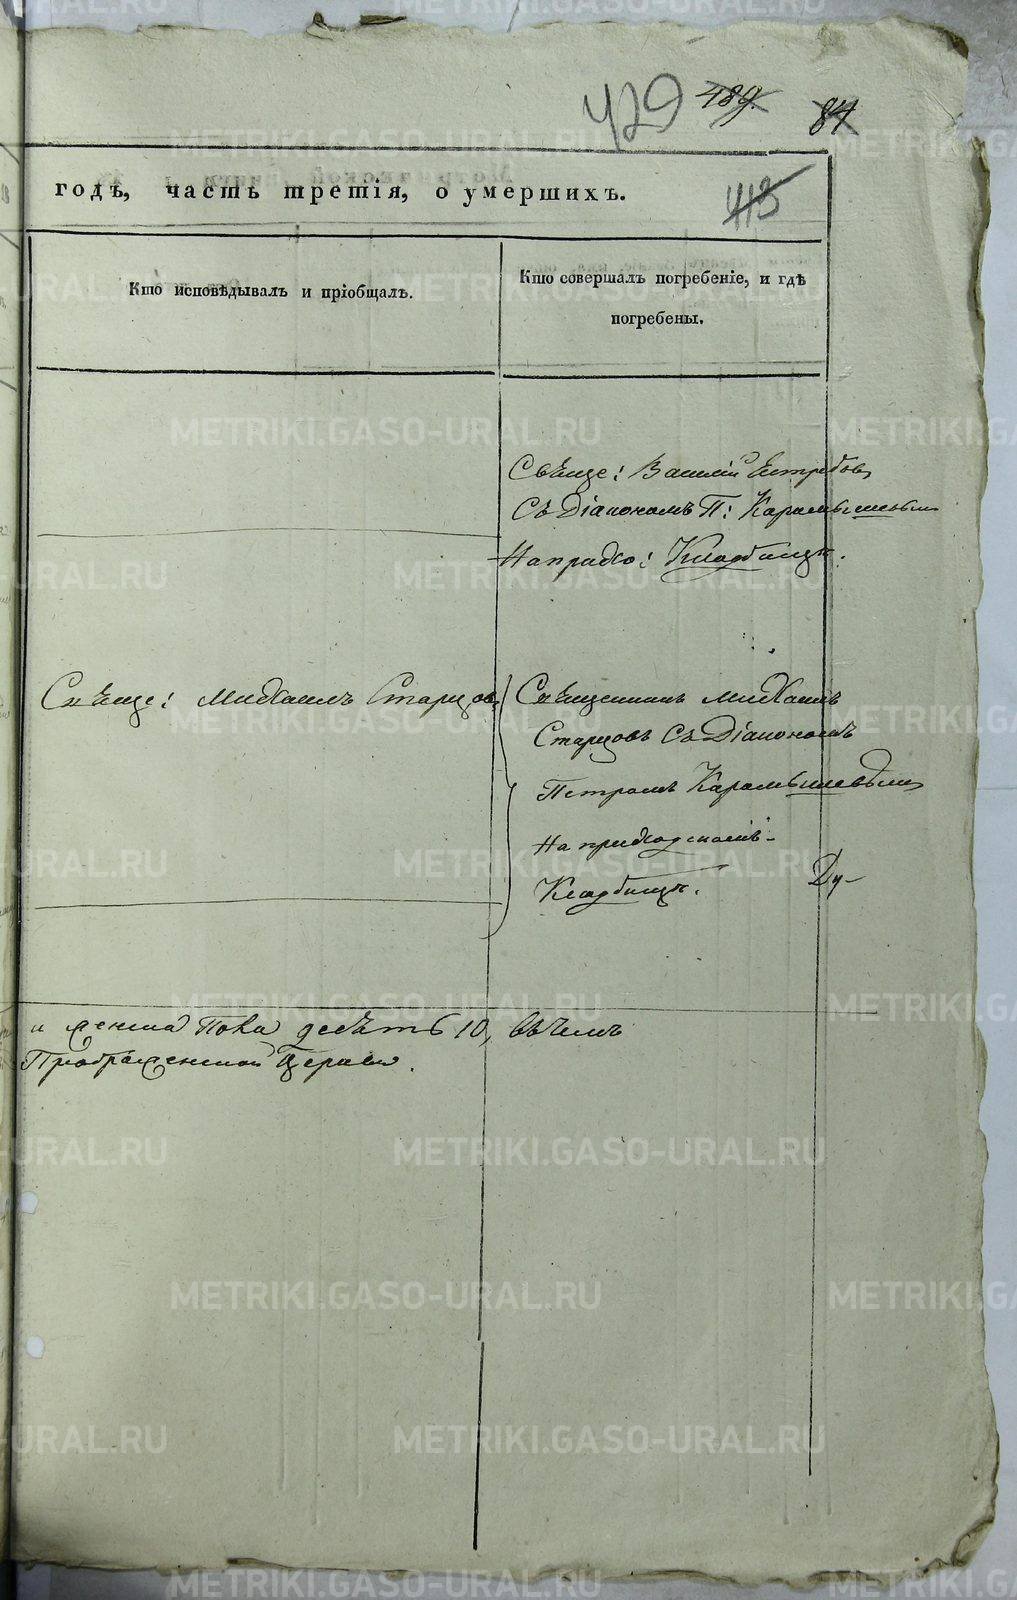 429 489. 84
годъ, часть третія, о умершихъ.
413
Кто исповѣдывалъ и пріобщалъ.
Кто совершалъ погребеніе, и гдѣ
погребены.
Свѣще: Василій Ястребовъ
съ Діакономъ П: Карамышевым
На прихо: Кладбищѣ.
Свѣще: Михаилъ Старцовъ
Священникъ Михаилъ
Старцовъ съ Діакономъ
Петромъ Карамышевымъ
На приходскомъ
Кладбищѣ.
Ду-
и женска Пола десѣть 10, въ чемъ
Преображенской Церкви.
METRIKI.GASO-URAL.RU